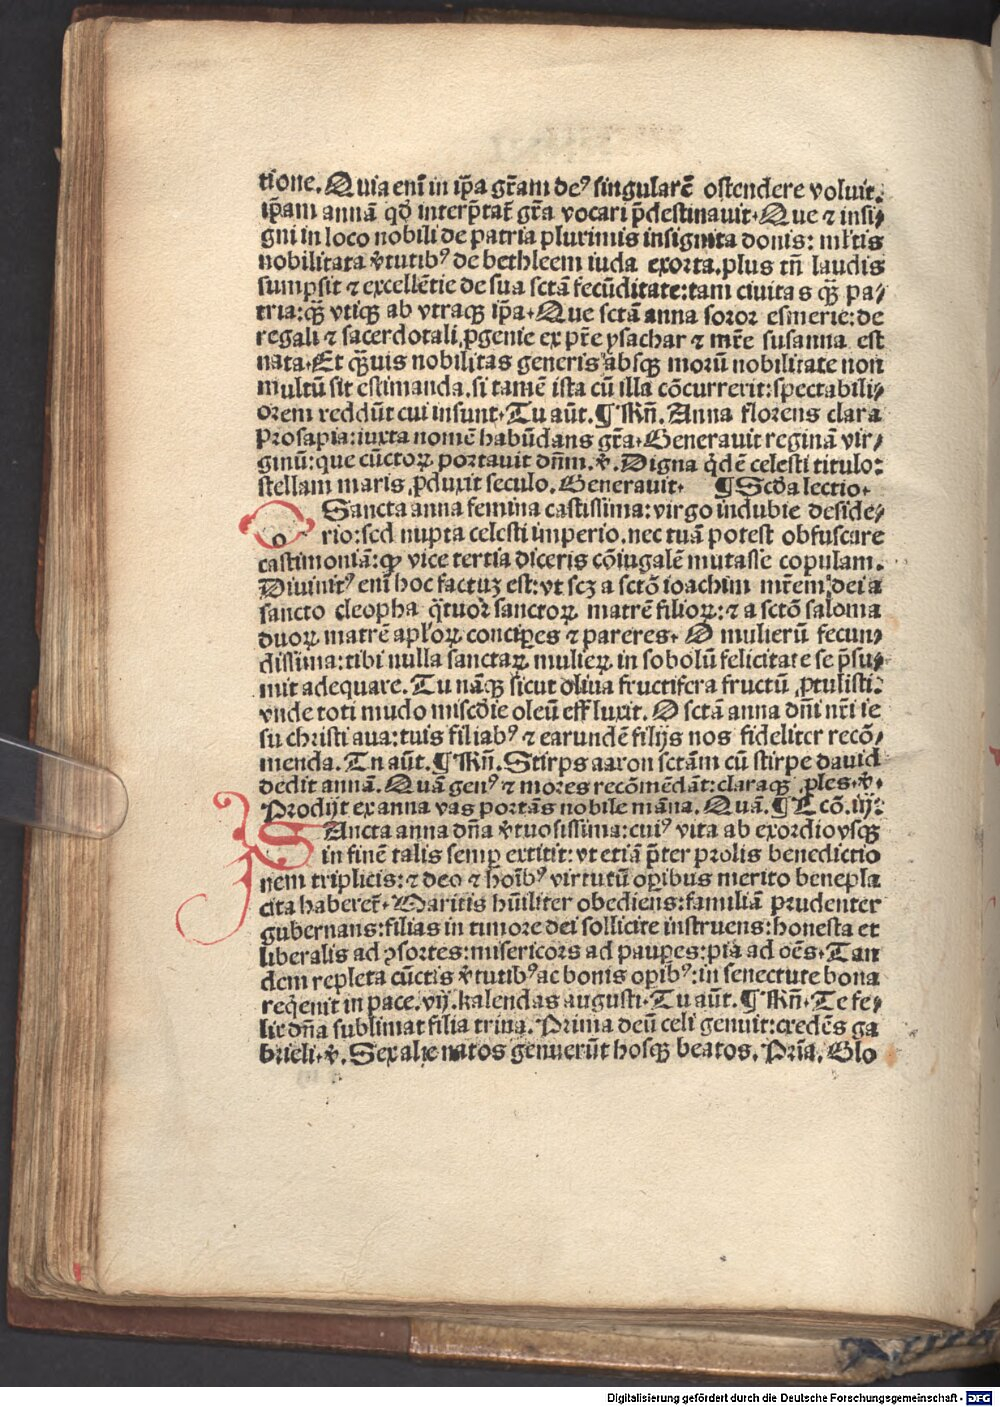 tione. Quia eni᷒ in ip̄a gr̄am deꝰ singularē ostendere voluit:
ip̄am annā qd̓ interp̄tat᷒ gr̄a vocari p̄destinauit. Que ⁊ insi⸗
gni in loco nobili de patria plurimis insignita donis: ml̓tis
nobilitata v̓tutibꝰ de bethleem iuda exorta. plus tn̄ laudis
sumpsit ⁊ excellētie de sua sctā fecūditate: tam ciuitas qꝫ̄ pa⸗
tria: qꝫ̄ vtiqꝫ ab vtraqꝫ ip̄a. Que sctā anna soror esmerie: de
regali ⁊ sacerdotali ꝓgenie ex pr̄e ysachar ⁊ mr̄e susanna est
nata. Et qꝫ̄uis nobilitas generis absqꝫ morū nobilitate non
multū sit estimanda. si tamē ista cū illa cōcurrerit: spectabili⸗
orem reddūt cui insunt. Tu aūt. ¶ Rn̄. Anna florens clara
prosapia: iuxta nomē habūdans gr̄a. Generauit reginā vir⸗
ginū: que cūctoꝝ portauit dn̄m. v̓. Digna qd̓ē celesti titulo:
stellam maris ꝓduxit seculo. Generauit. ¶ Scd̓a lectio.
O Sancta anna femina castissima: virgo indubie deside⸗
rio: sed nupta celesti imperio. nec tuā potest obfuscare
castimoniā: qꝙ vice tertia diceris cōiugalē mutasse copulam.
Diuinitꝰ eni᷒ hoc factuꝫ est: vt scꝫ a sctō ioachim mr̄em dei a
sancto cleopha qͣtuor sanctoꝝ matrē filioꝝ: ⁊ a sctō saloma
duoꝝ matrē apl̓oꝝ conciꝑes ⁊ pareres. O mulierū fecun⸗
dissima: tibi nulla sanctaꝝ mulieꝝ in sobolū felicitate se p̄su⸗
mit adequare. Tu nāqꝫ sicut oliua fructifera fructū ꝓtulisti:
vnde toti mūdo miscd̓ie oleū effluxit. O sctā anna dn̄i nr̄i ie
su christi aua: tuis filiabꝰ ⁊ earundē filijs nos fideliter recō⸗
menda. Tu aūt. ¶ Rn̄. Stirps aaron sctām cū stirpe dauid
dedit annā. Quā genꝰ ⁊ mores recōmēdāt: claraqꝫ ꝓles. v̓.
Prodijt ex anna vas portās nobile māna. Quā. ¶ Lcō. iij:
SAncta anna dn̄a v̓tuosissima: cuiꝰ vita ab exordio vsqꝫ
in finē talis semꝑ extitit: vt etiā p̄ter prolis benedictio
nem triplicis: ⁊ deo ⁊ hoībꝰ virtutū oꝑibus merito benepla
cita haberet᷒. Maritis hūiliter obediens: familiā prudenter
gubernans: filias in timore dei sollicite instruens: honesta et
liberalis ad ꝯsortes: misericors ad pauꝑes: pia ad oēs. Tan
dem repleta cūctis v̓tutibꝰ ac bonis oꝑibꝰ: in senectute bona
req̓euit in pace. vij. kalendas augusti. Tu aūt. ¶ Rn̄. Te fe⸗
lix dn̄a sublimat filia trina. Prima deū celi genuit: credēs ga
brieli. v̓. Sex alie natos genuerūt hosqꝫ beatos. Pri᷒a. Glo
Digitalisierung gefördert durch die Deutsche Forschungsgemeinschaft - DFG